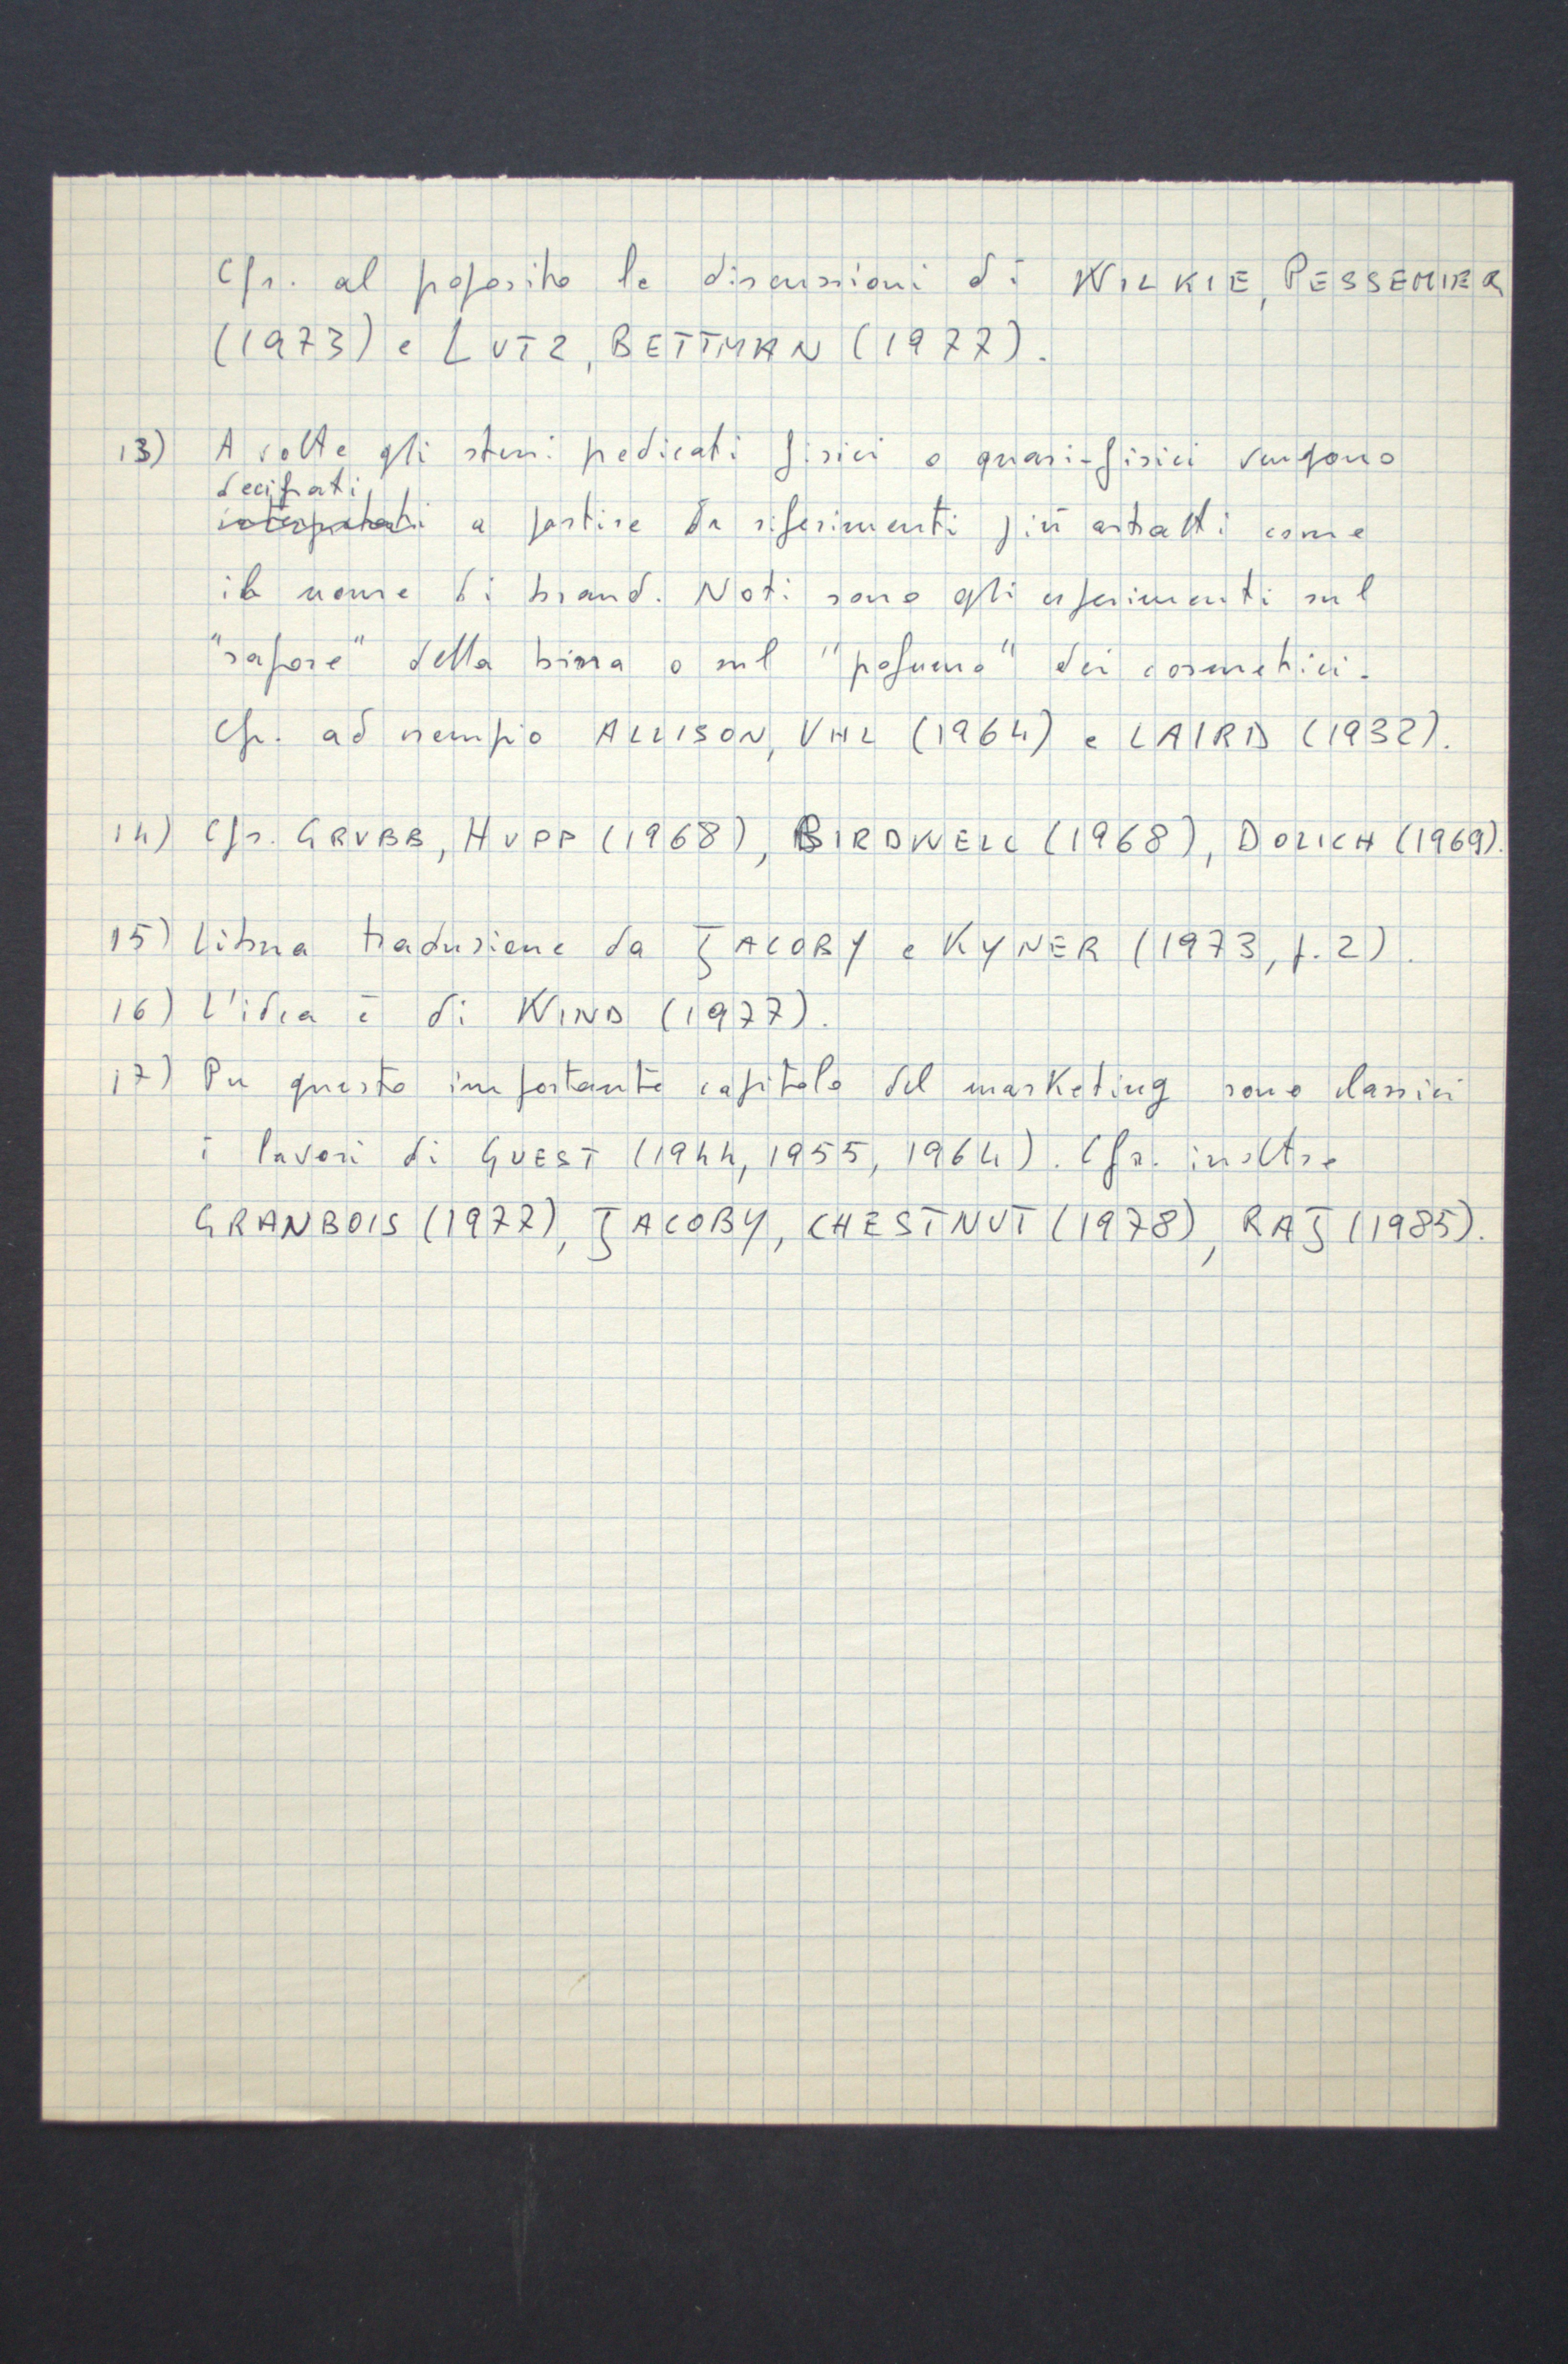 Cfr. al proposito le discussioni di WILKIE, PESSEMIER
(1973) e LUTZ, BETTMAN (1977).
13) A volte gli stessi predicati fisici o quasi-fisici vengono
decifrati
interpretati a partire da riferimenti più astratti come
il nome di brand. Noti sono gli esperimenti sul
"sapore" della birra o sul "profumo" dei cosmetici.
Cfr. ad esempio ALLISON, UHL (1964) e LAIRD (1932).
14) Cfr. GRUBB, HUPP (1968), BIRDWELL (1968), DOLICH (1969).
15) Libera traduzione da JACOBY e KYNER (1973, p. 2).
16) L'idea è di WIND (1977).
17) Su questo importante capitolo del marketing sono classici
i lavori di GUEST (1944, 1955, 1964). Cfr. inoltre
GRANBOIS (1977), JACOBY, CHESTNUT (1978), RAJ (1985).